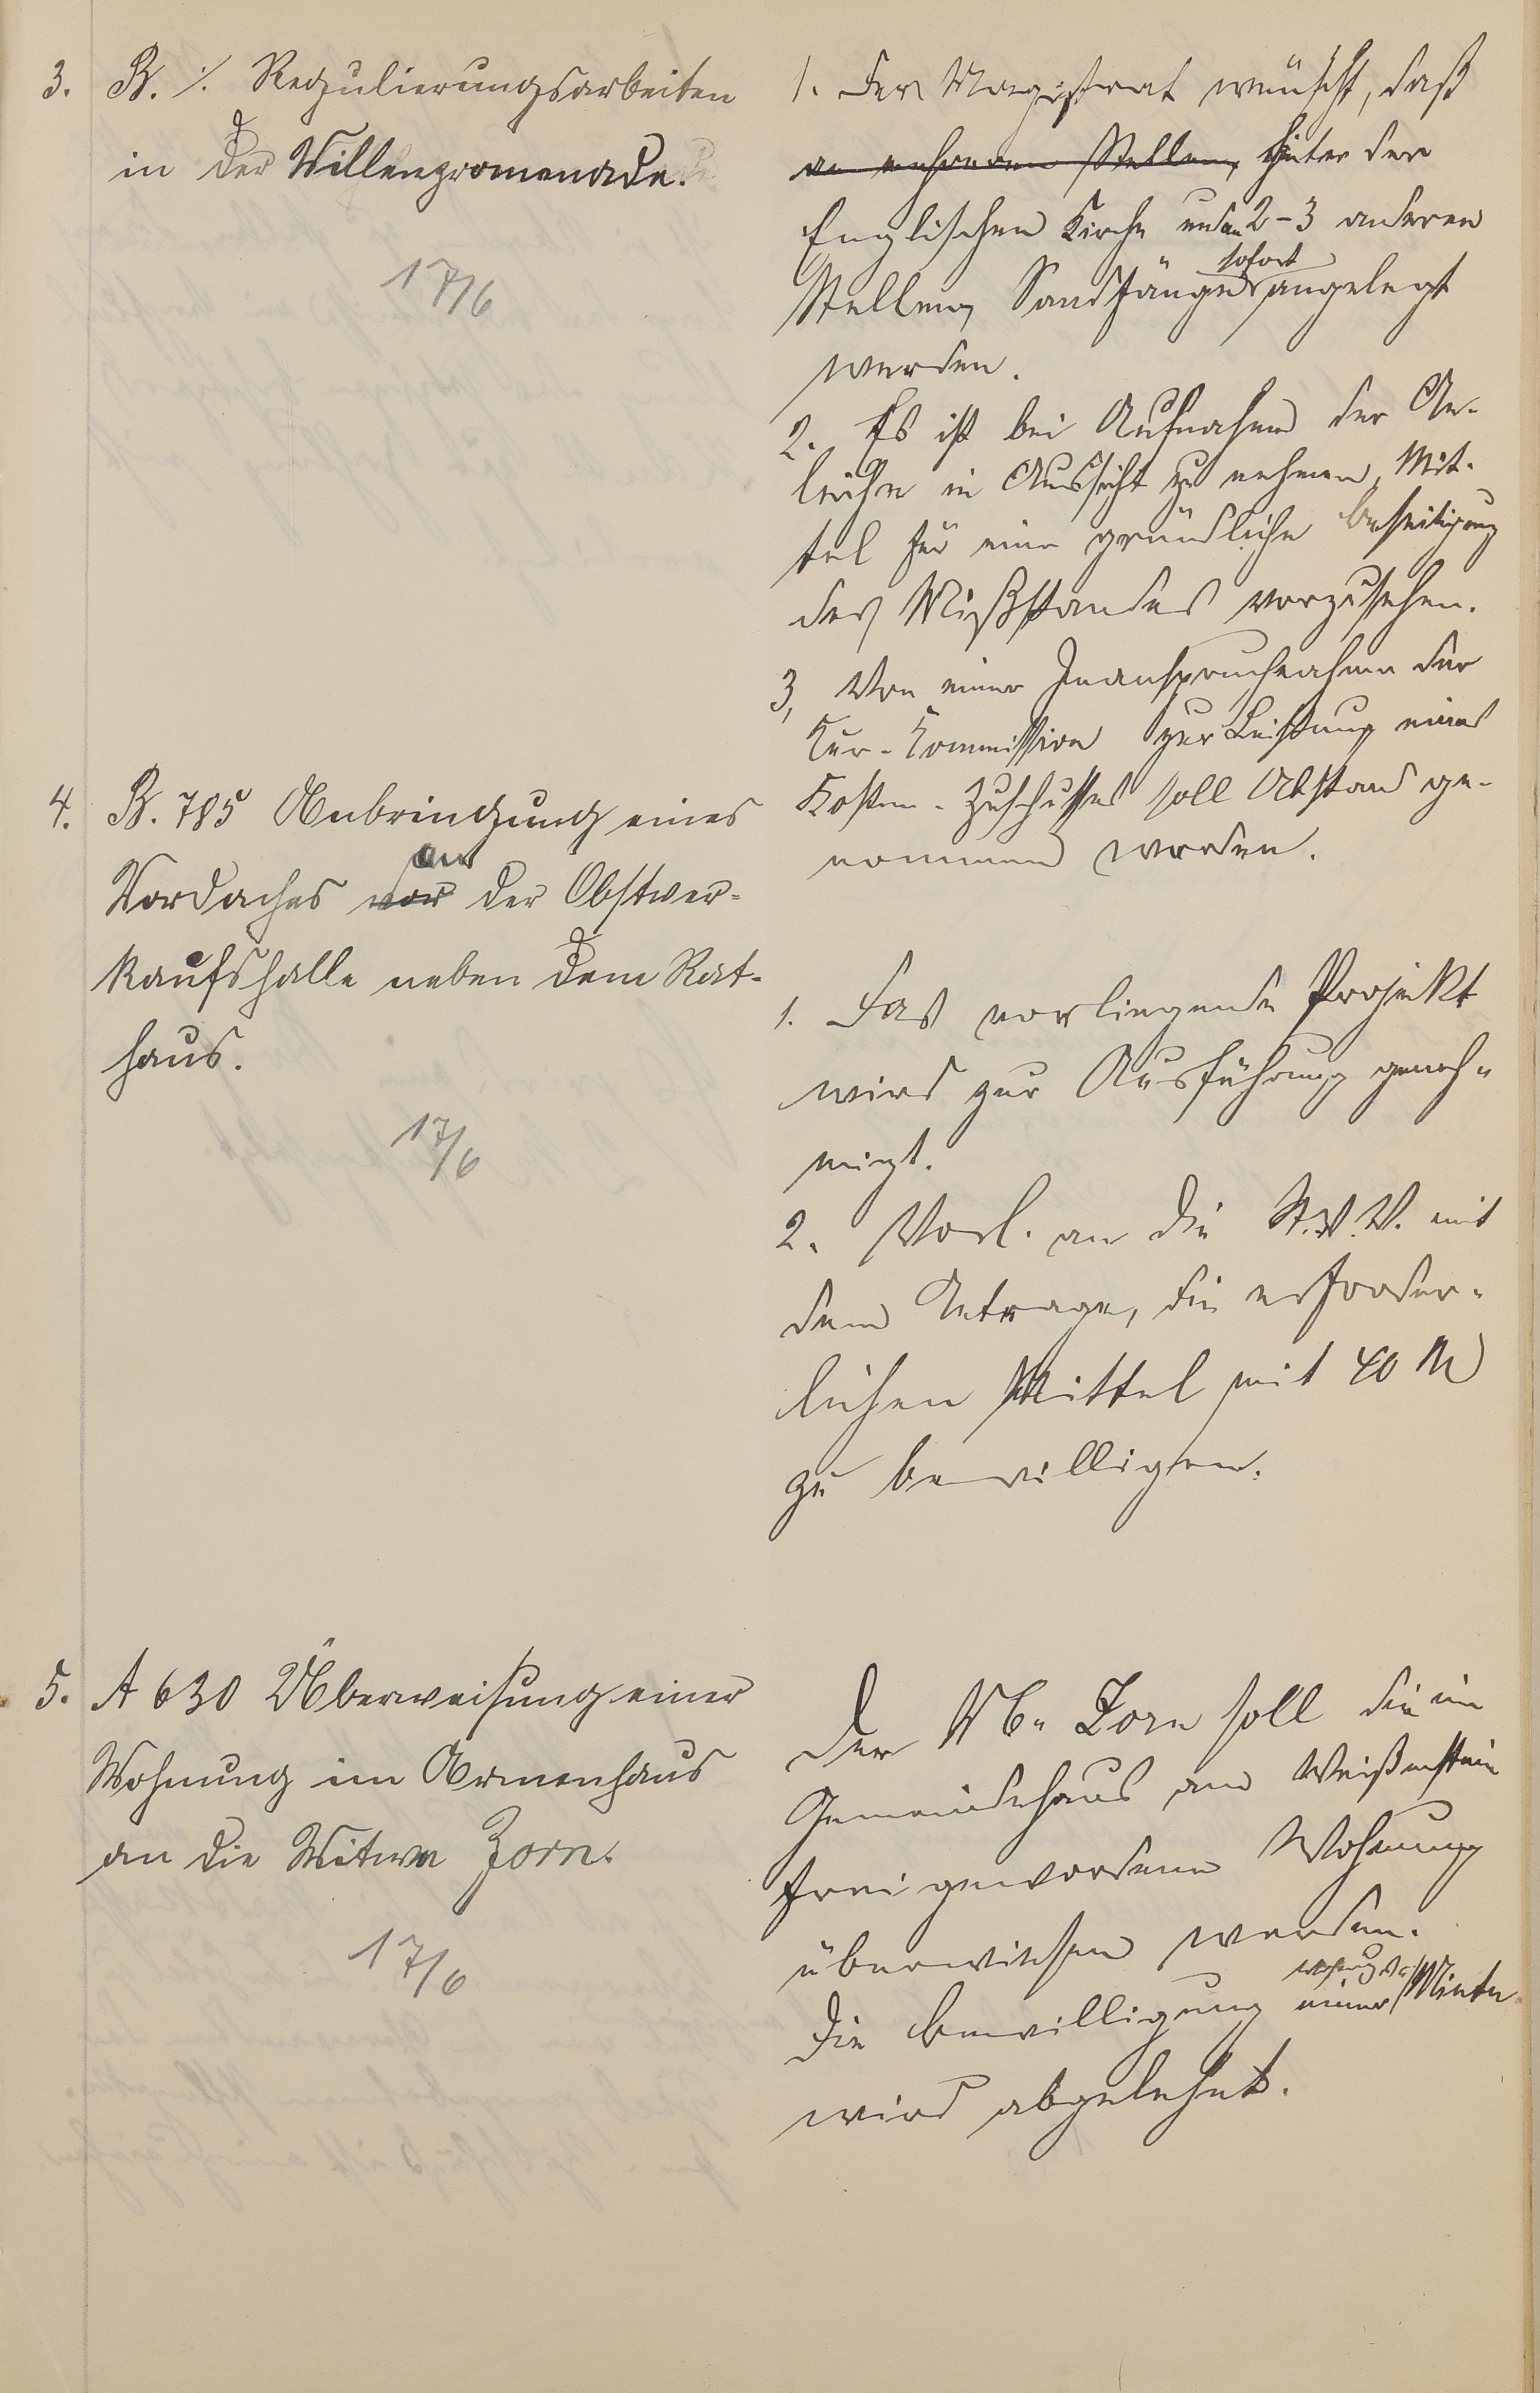 3. B. ∕. Regulierungsarbeiten
in der Villenpromenade.
17/6
1. Der Magistrat wünscht, daß
an mehreren Stellen, hinter der
Englischen Kirche und an 2-3 anderen
Stellen, Sandfänge sofort angelegt
werden.
2. Es ist bei Aufnahme der An-
leihe in Aussicht zu nehmen, Mit-
tel für eine gründliche Beseitigung
des Mißstandes vorzusehen.
3, Von einer Inanspruchnahme der
Kur-Kommission zur Leistung eines
Kosten-Zuschusses soll Abstand ge-
nommen werden.
4. B. 785 Anbringung eines
Vordaches vor an der Obstver-
kaufshalle neben dem Rat-
haus.
17/6
1. Das vorliegende Projekt
wird zur Ausführung geneh-
migt.
2. Vorl. an die St.V.V. mit
dem Antrage, die erforder-
lichen Mittel mit 40 M
zu bewilligen.
5. A 630 Überweisung einer
Wohnung im Armenhaus
an die Witwe Zorn.
17/6
Der W. Zorn soll die im
Gemeindehaus am Weißenstein
frei gewordene Wohnung
überwiesen werden.
Die Bewilligung einer Miete
wird abgelehnt.